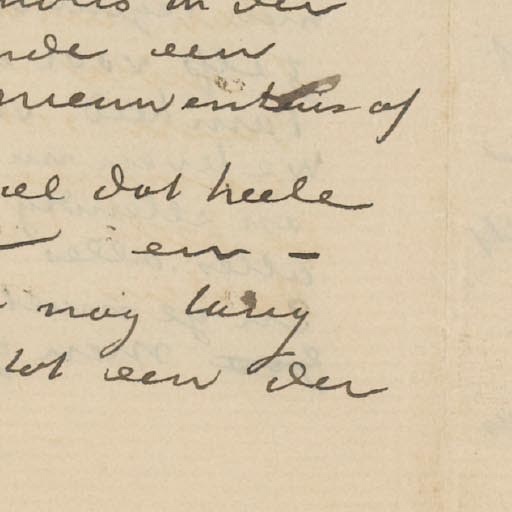 in der
nde een
nieuw en
af
dat heele
en –
nog lang
tot een der